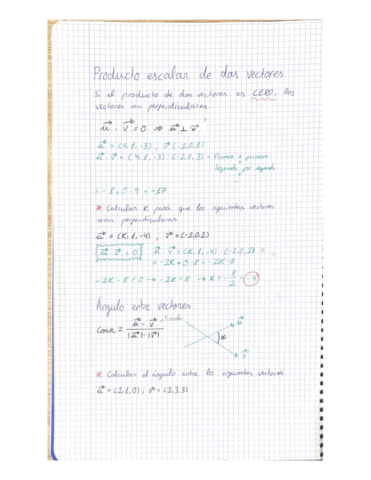 Producto escalar de dos vectores
Si el producto de dos vectores es CERO, los
vectores son perpendiculares.
u⃗ · v⃗ = 0 ⇒ u⃗ ⊥ v⃗
u⃗ = (4, 1, -3) , v⃗ (-2, 0, 3)
u⃗ · v⃗ = (4, 1, -3) · (-2, 0, 3) = Primero × primero
Segundo por segundo
= -8 + 0 - 9 = -17
* Calcular K para que los siguientes vectores
sean perpendiculares
u⃗ = (K, 1, -4) , v⃗ = (-2, 0, 2)
{u⃗ · v⃗ = 0} u⃗ · v⃗ = (K, 1, -4) · (-2, 0, 2) =
= -2K + 0 - 8 = -2K - 8
-2K - 8 = 0 → -2K = 8 → K = -8/2 = -4
Ángulo entre vectores
Cos α = u⃗ · v⃗ / |u⃗| · |v⃗|
u⃗
α
v⃗
* Calcular el ángulo entre los siguientes vectores
u⃗ = (2, 1, 0) , v⃗ = (2, 3, 3)